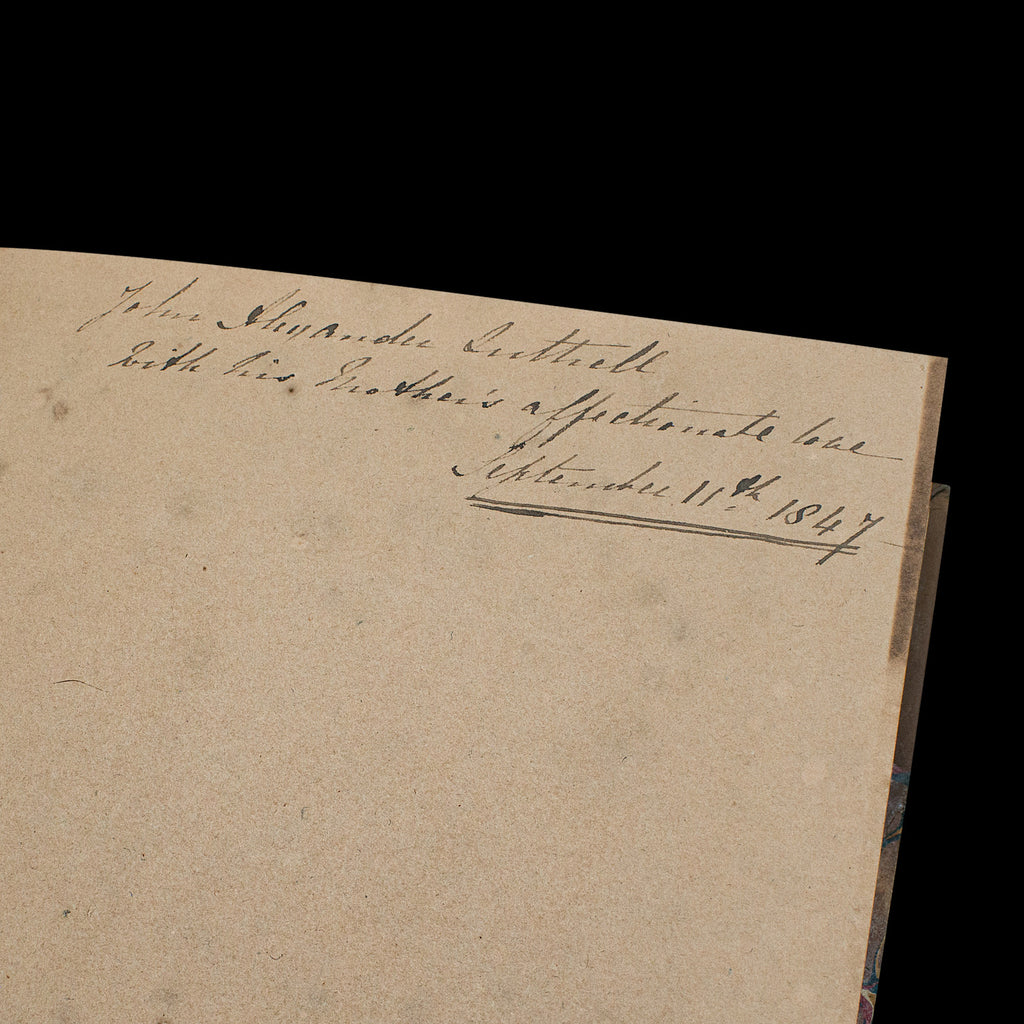 John Alexander Luttrell
With his Mother's affectionate love
September 11th 1847